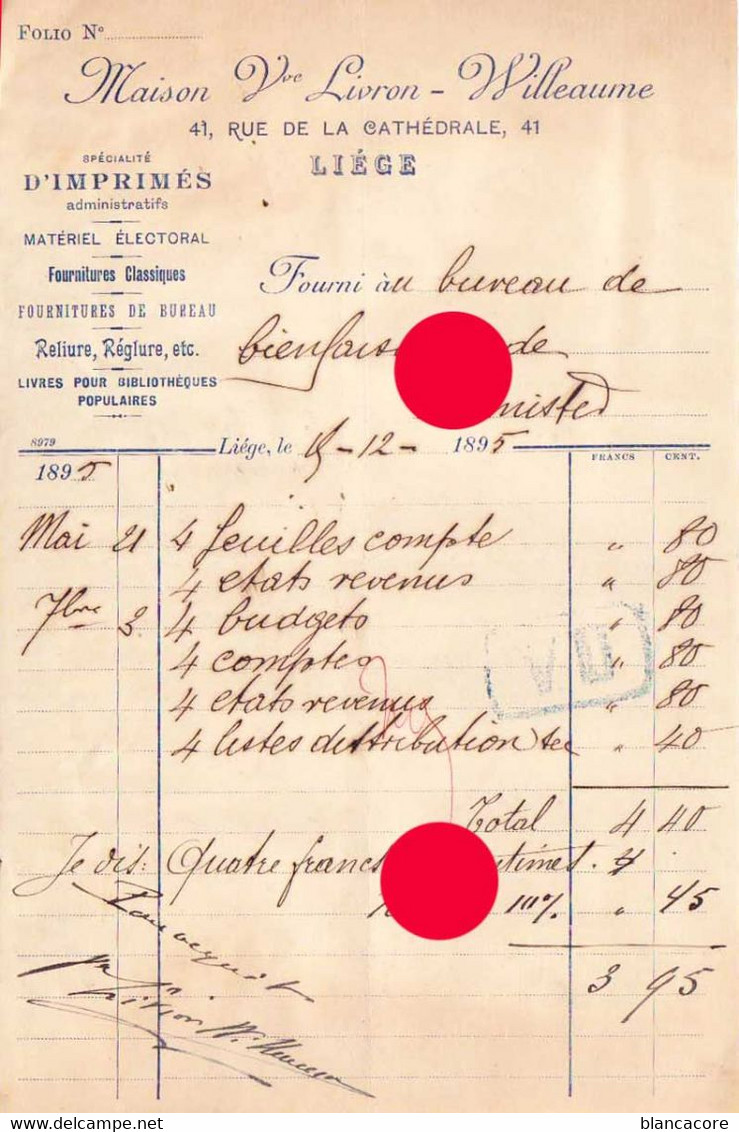 FOLIO N°
Maison Vve Livron-Willeaume
41, RUE DE LA CATHÉDRALE, 41
LIÉGE
SPÉCIALITÉ
D'IMPRIMÉS
administratifs
MATÉRIEL ÉLECTORAL
Fournitures Classiques
FOURNITURES DE BUREAU
Reliure, Réglure, etc.
LIVRES POUR BIBLIOTHÈQUES
POPULAIRES
Fourni au bureau de
de
8979
Liége, le 15-12- 1895
FRANCS CENT.
1895
Mai 21 4 feuilles compte " 80
4 etats revenus " 80
7bre 3 4 budgets " 80
4 comptes " 80
4 etats revenus " 80
4 listes distribution sec " 40
VU
Total 4 40
Je dis: Quatre francs
10% " 45
3 95
Pour acquit
Livron Willeaume
blancacore